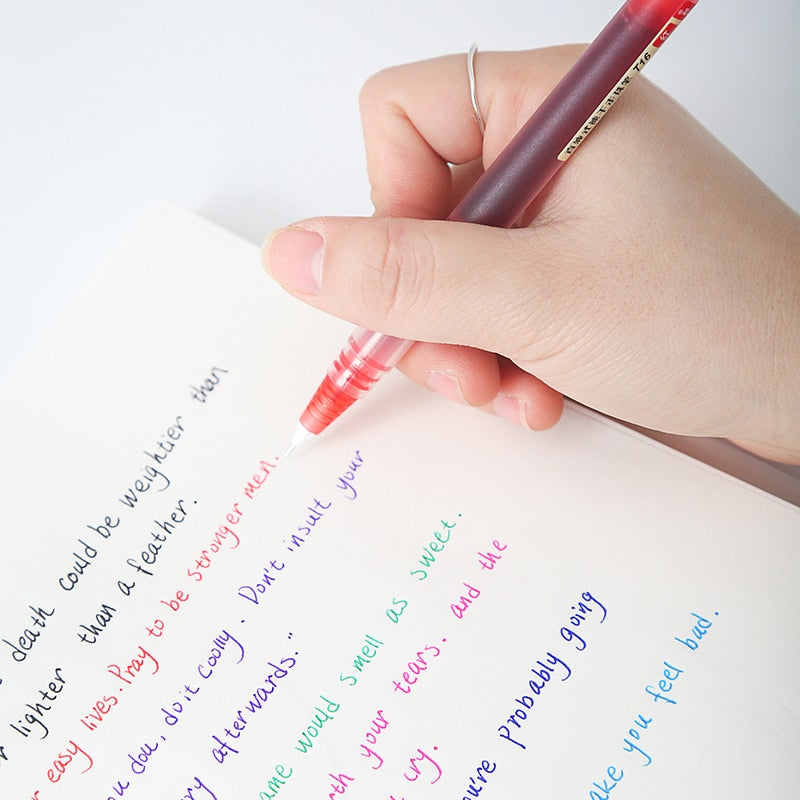 death could be weightier than
lighter than a feather.
easy lives. Pray to be stronger men.
you dou, do it coolly. Don't insult your
afterwards."
ame would smell as sweet.
your tears. and the
cry.
you're probably going
ake you feel bad.
T16
红